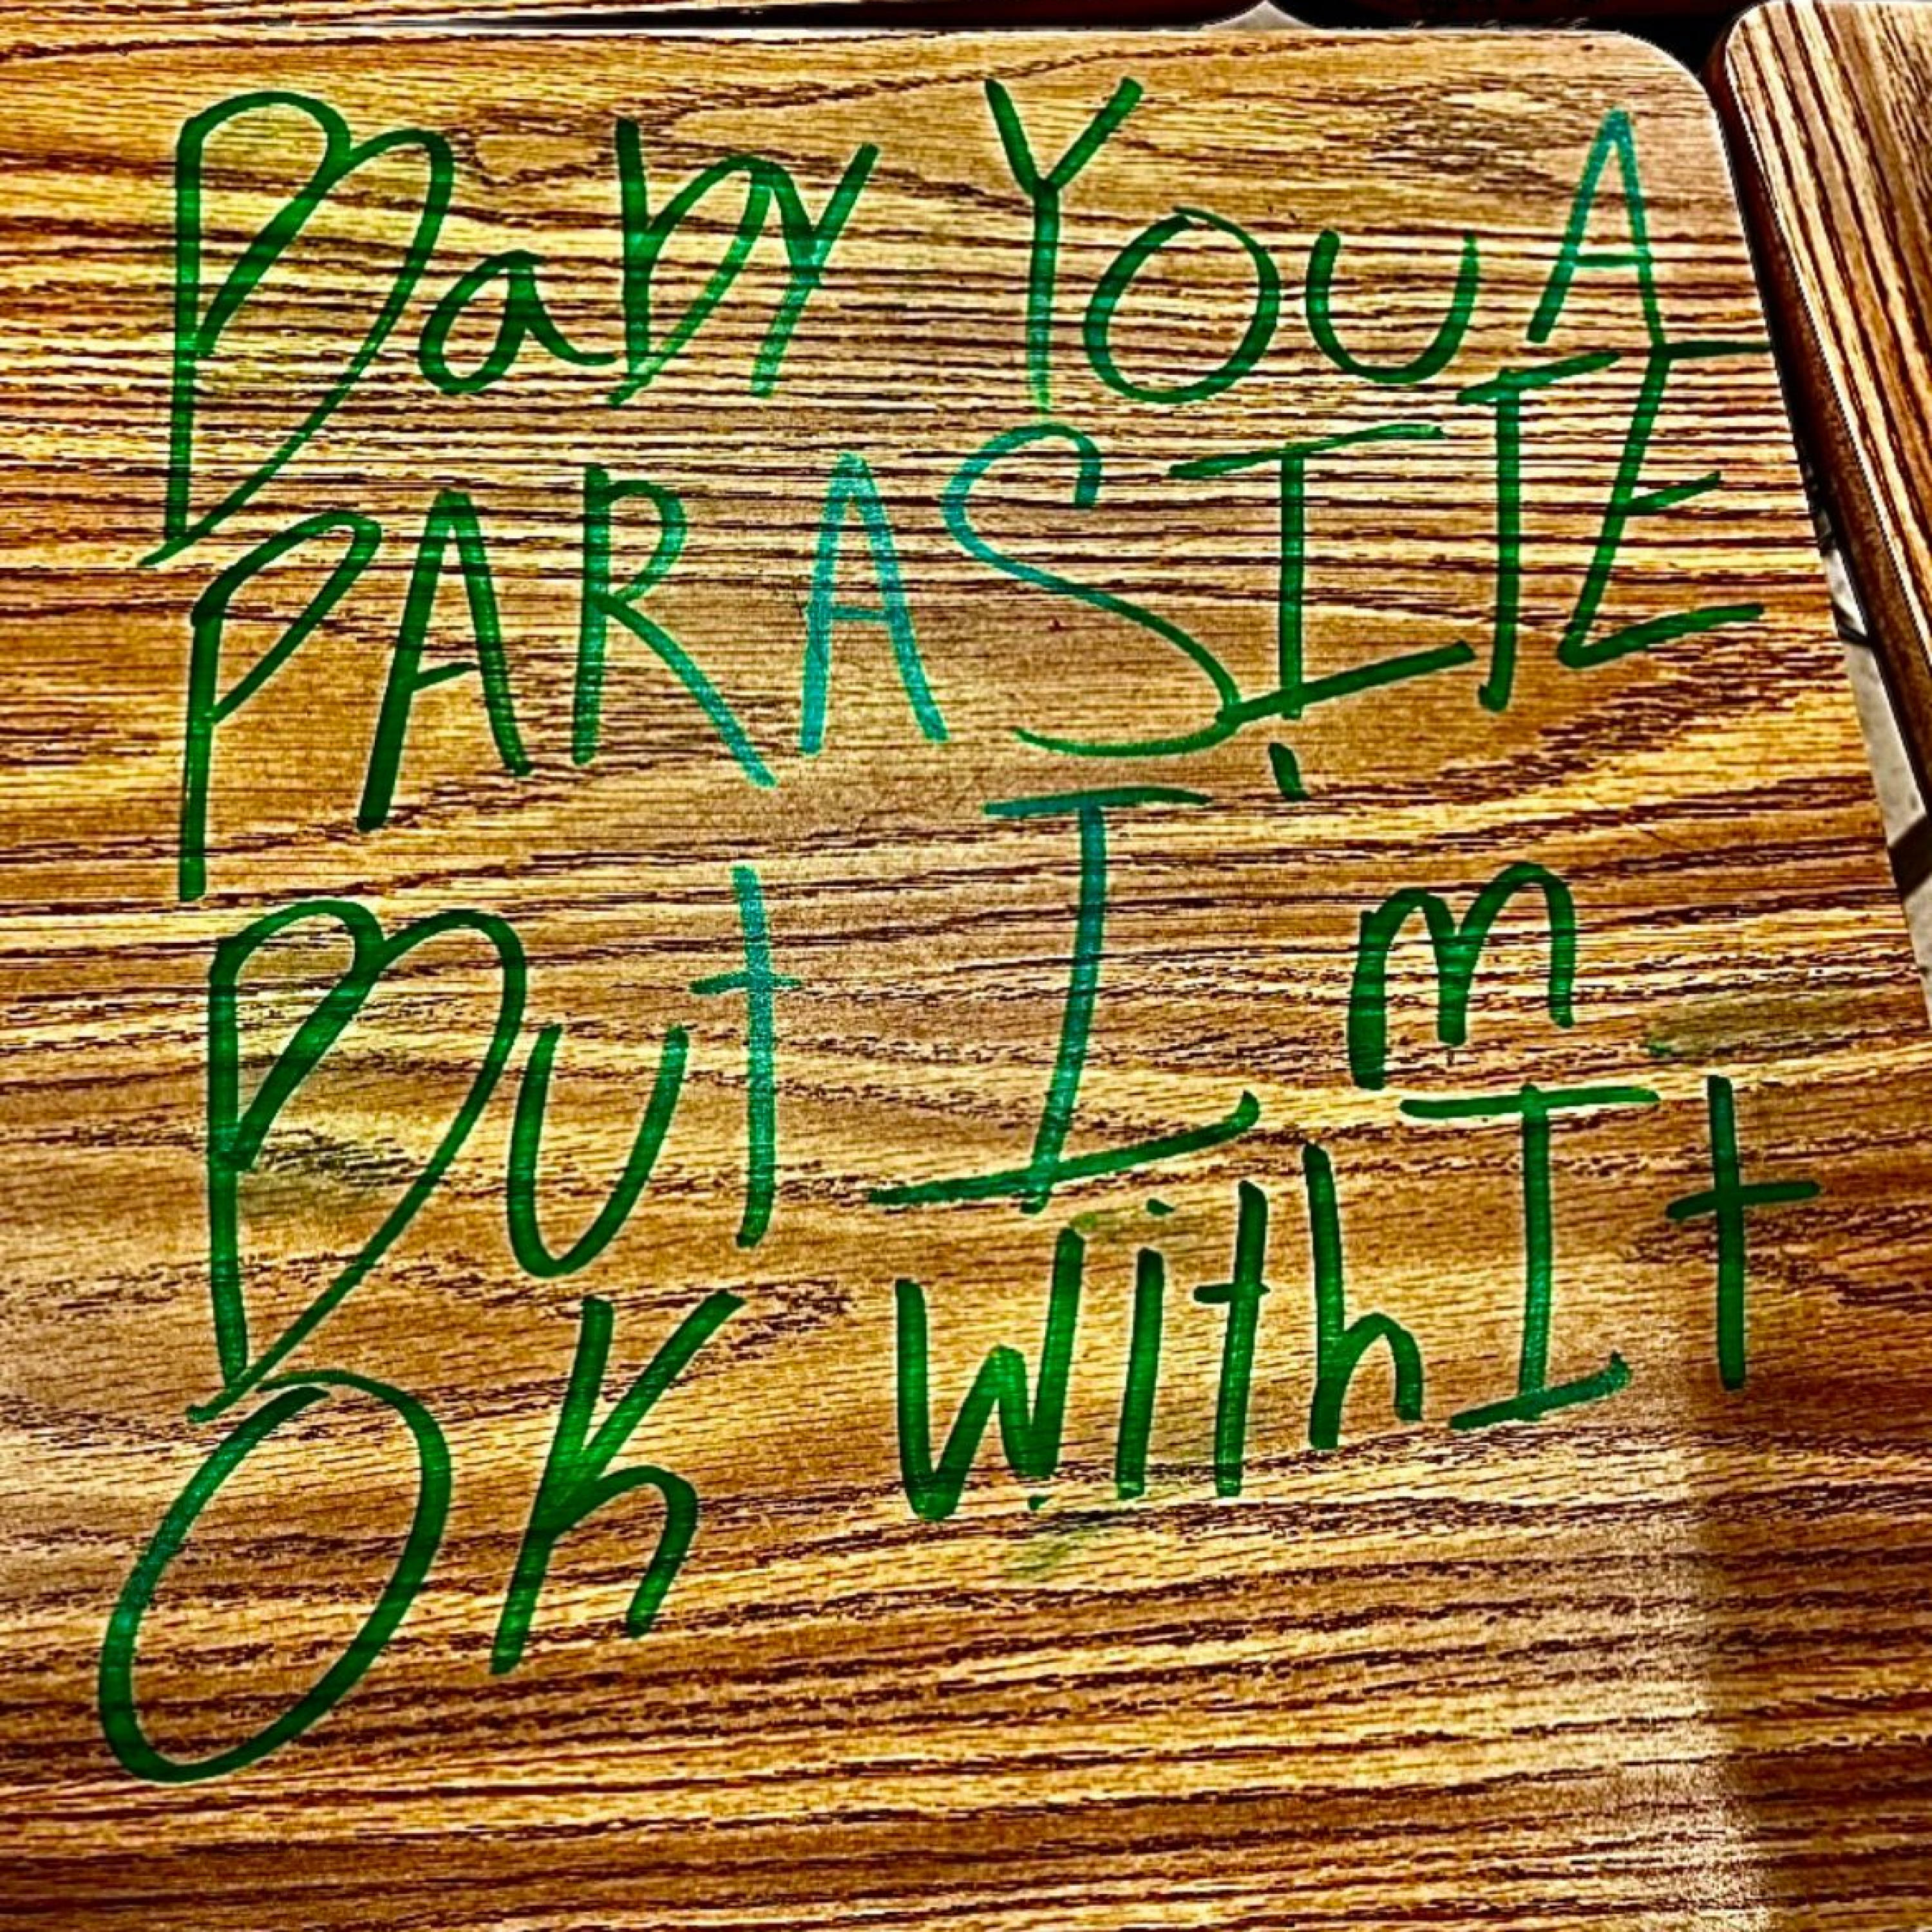 Baby You A
PARASITE
But I'm
OK with It